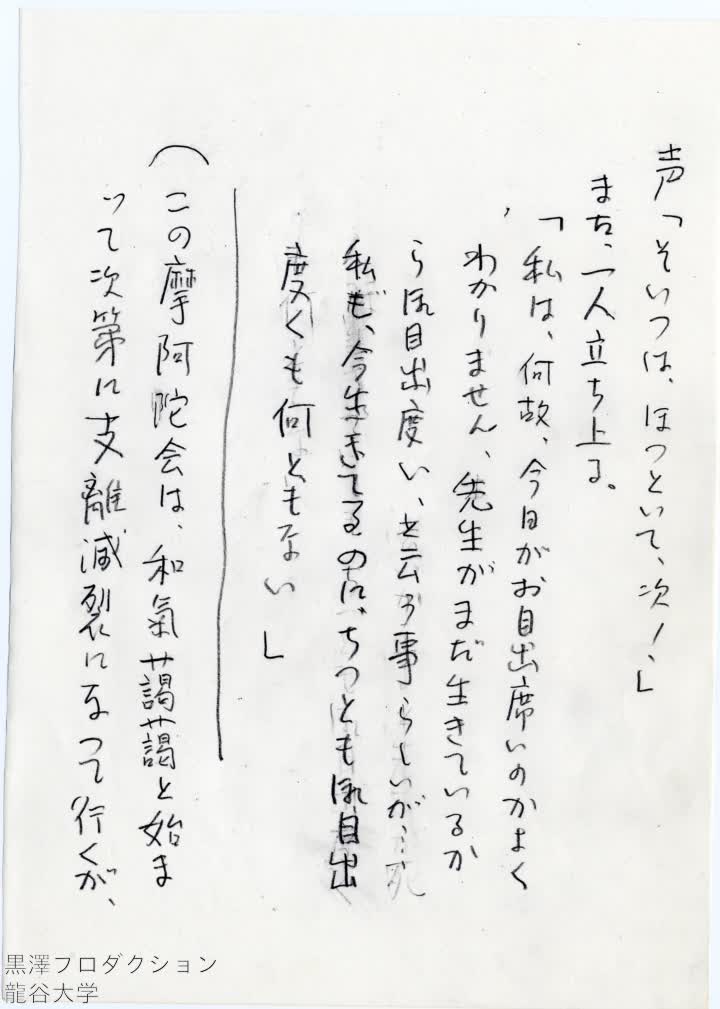 声「そいつは、ほつといて、次!」
また、一人立ち上る。
「私は、何故、今日がお目出席いのかよく
わかりません、先生がまだ生きているか
らお目出度い、と云ふ事らしいが…
私も、今生きてるのに、ちつともお目出
度くも何ともない」
(この摩阿陀会は、和氣藹藹と始ま
つて次第に支離滅裂になつて行くが、
黒澤プロダクション
龍谷大学